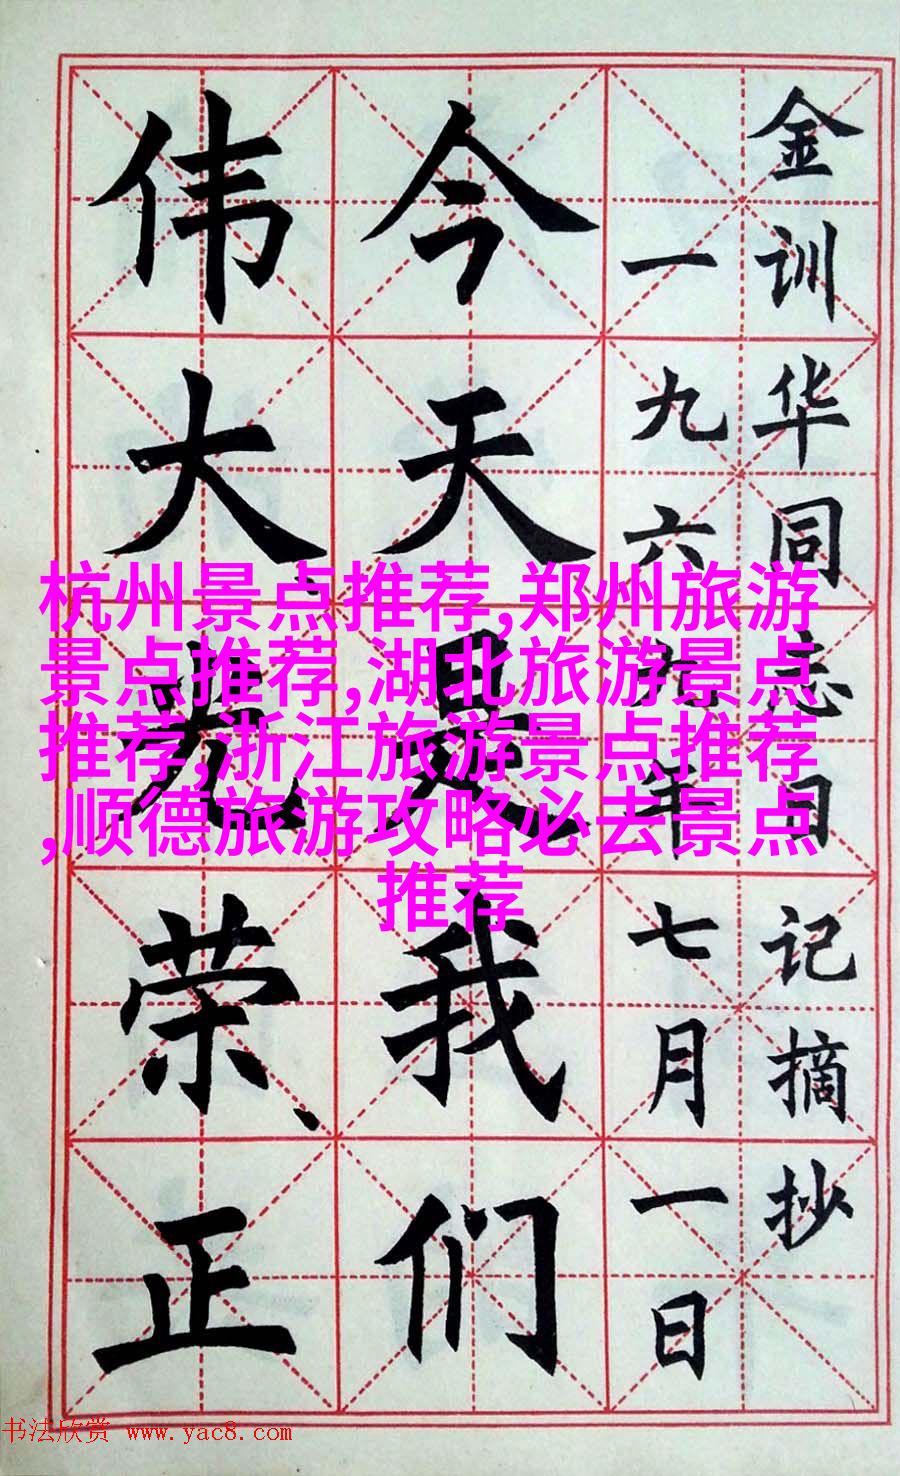 金训华同志日记摘抄
一九六九年七月一日
今天是我们
伟大、光荣、正
杭州景点推荐,郑州旅游
景点推荐,湖北旅游景点
推荐,浙江旅游景点推荐
,顺德旅游攻略必去景点
推荐
书法欣赏 www.yac8.com